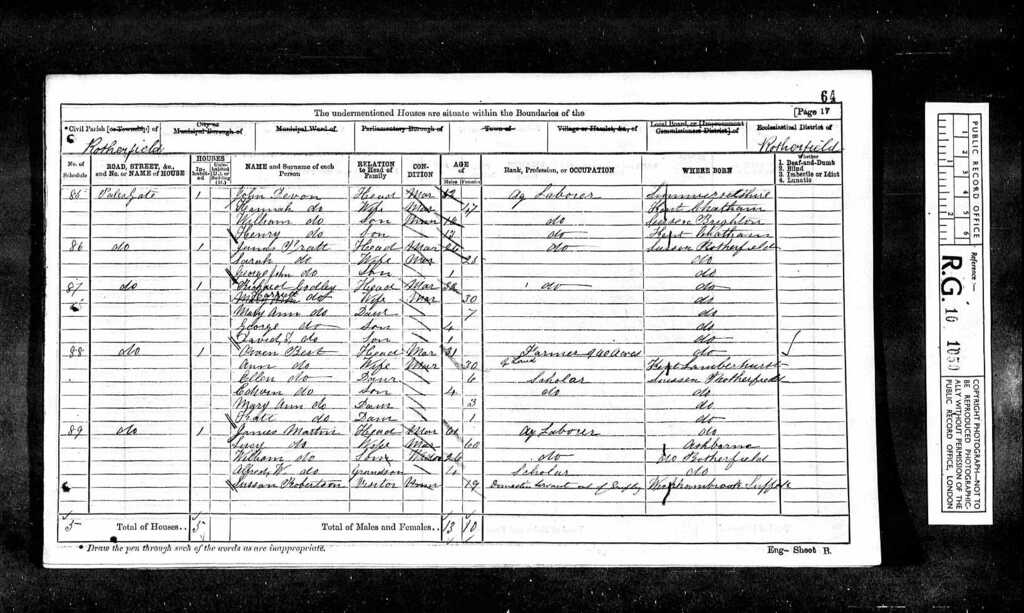 64
The undermentioned Houses are situate within the Boundaries of the [Page 17
*Civil Parish [or Township] of City or Municipal Borough of Municipal Ward of Parliamentary Borough of Town of Village or Hamlet, &c., of Local Board, or [Improvement Commissioners District] of Ecclesiastical District of
Rotherfield Rotherfield
No. of Schedule ROAD, STREET, &c., and No. or NAME of HOUSE HOUSES Inhabited Uninhabited (U.), or Building (B.) NAME and Surname of each Person RELATION to Head of Family CONDITION AGE of Males Females Rank, Profession, or OCCUPATION WHERE BORN Whether 1. Deaf-and-Dumb 2. Blind 3. Imbecile or Idiot 4. Lunatic
85 1 John Head Mar Ag Laborer
Hannah do Wife Mar 47 Kent Chatham
William do Son 18 do Sussex Brighton
Henry do Son 13 do Kent Chatham
86 do 1 James Pratt Head Mar 26 do Sussex Rotherfield
Sarah do Wife Mar do
George John do Son 1 do
87 do 1 Head Mar do do
do Wife Mar 30 do
Mary Ann do Daur 7 do
George do Son 4 do
David do Son 1 do
88 do 1 Owen Best Head Mar 31 Farmer Acres do
of Land
Ann do Wife Mar 30 Kent Lamberhurst
Ellen do Daur 6 Scholar Sussex Rotherfield
Edwin do Son 4 do do
Mary Ann do Daur 3 do
do Daur 1 do
89 do 1 James Martin Head Mar Ag Laborer do
Lucy do Wife Mar 60
William do Son 26 do do Rotherfield
Alfred W. do Grandson 4 Scholar do
Sussan Robertson Visitor Unm 19 Domestic Servant out of Suffolk
5 Total of Houses.. 5 Total of Males and Females.. 13 10
* Draw the pen through such of the words as are inappropriate.
Eng- Sheet B.
PUBLIC RECORD OFFICE
1 2 3 4 5 6
Reference :-
R.G. 10 1050
COPYRIGHT PHOTOGRAPH-NOT TO BE REPRODUCED PHOTOGRAPHICALLY WITHOUT PERMISSION OF THE PUBLIC RECORD OFFICE, LONDON